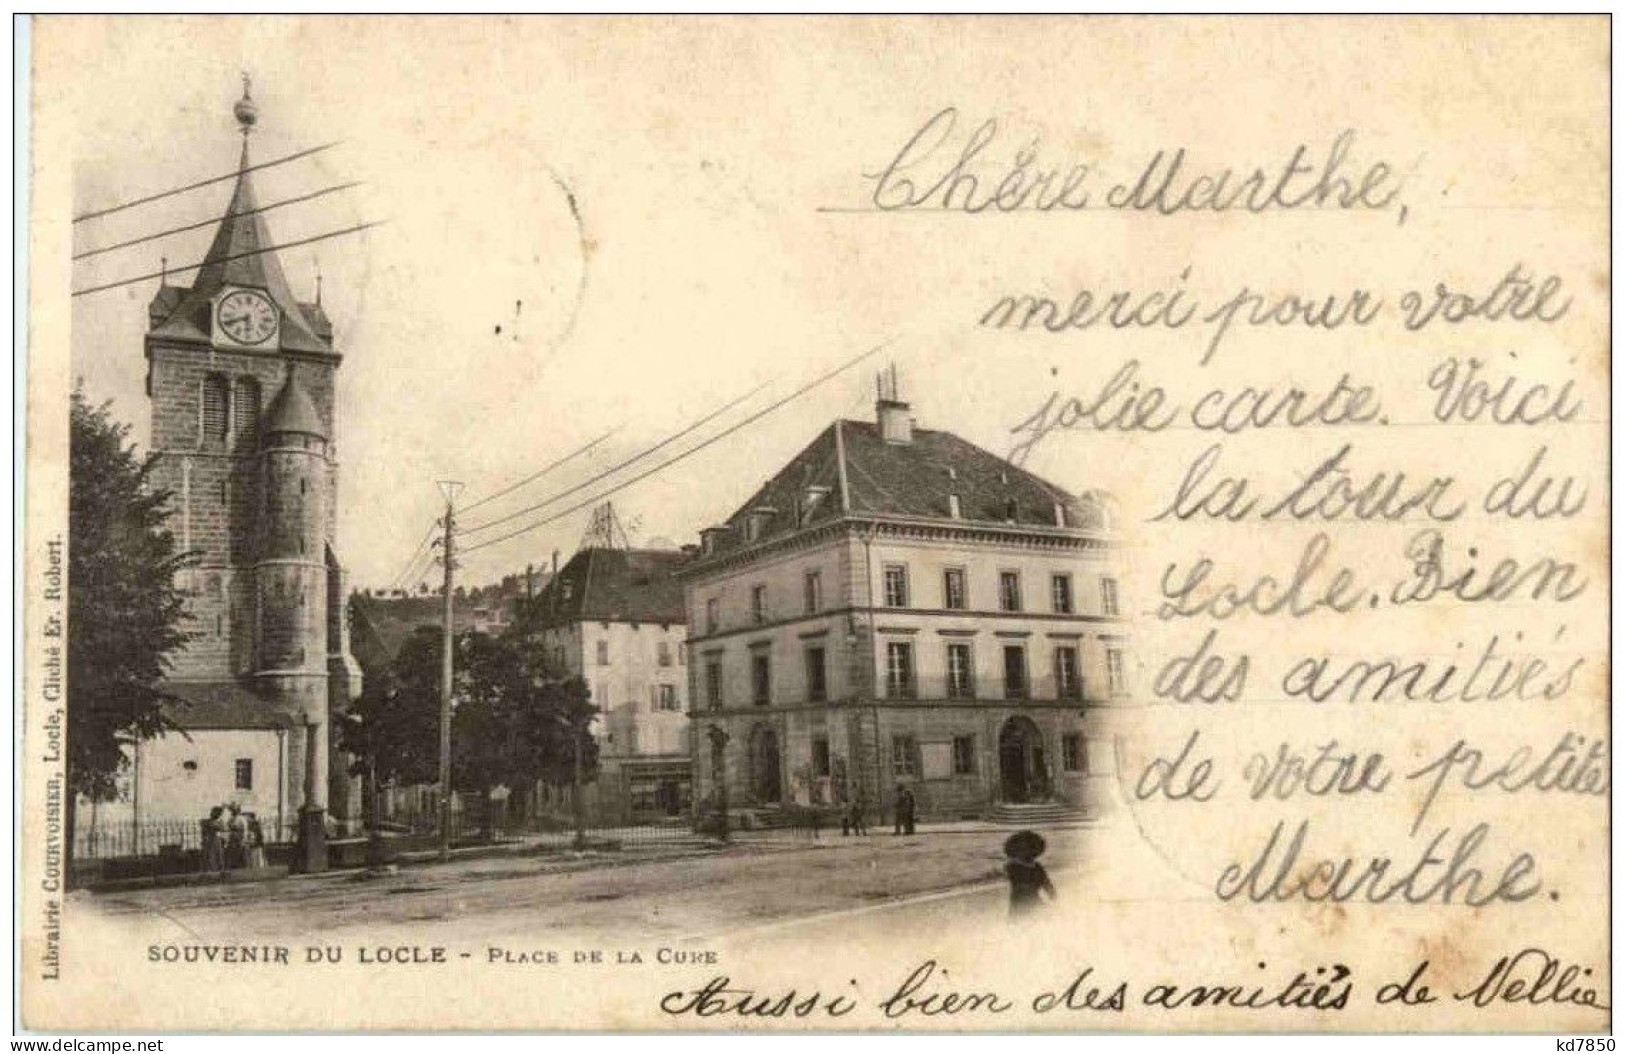 Chère Marthe,
merci pour votre
jolie carte. Voici
la tour du
Locle. Bien
des amitiés
de votre petite
Marthe.
Aussi bien des amitiés de Nellie
SOUVENIR DU LOCLE - PLACE DE LA CURE
Librairie COURVOISIER, Locle, Cliché Er. Robert.
www.delcampe.net
kd7850